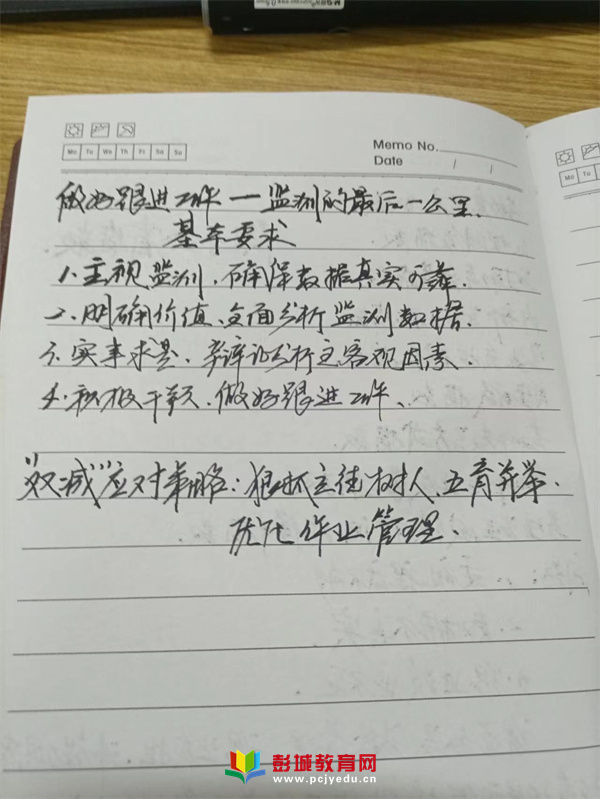 Memo No.
Date / /
Mo Tu We Th Fr Sa Su
做好跟进工作一监测的最后一公里.
基本要求
1.主视监测,确保数据真实可靠.
2.明确价值、全面分析监测数据.
3.实事求是,辩证分析主客观因素.
4.积极干预.做好跟进工作、
"双减"应对策略:狠抓立德树人、五育并举.
优化作业管理.
彭城教育网
www.pcjyedu.cn